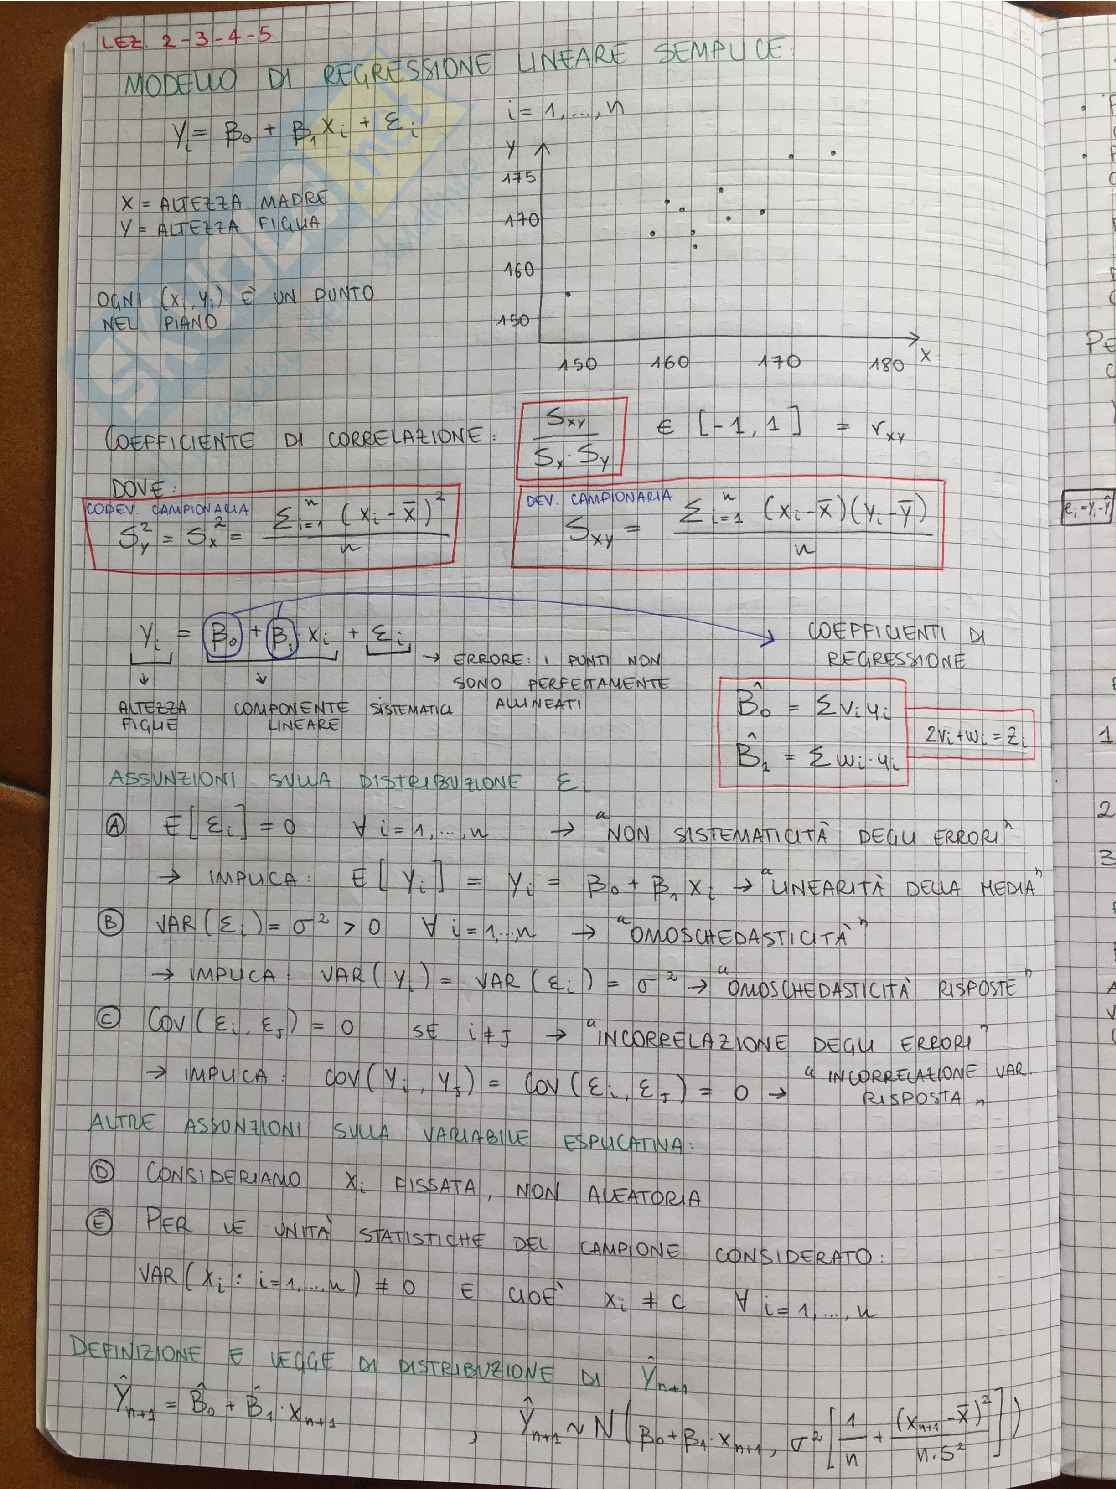 LEZ. 2-3-4-5
MODELLO DI REGRESSIONE LINEARE SEMPLICE
Yi = β0 + β1 Xi + εi    i = 1, ..., n
X = ALTEZZA MADRE
Y = ALTEZZA FIGLIA
OGNI (xi, yi) È UN PUNTO
NEL PIANO
Y
175
170
160
150
150 160 170 180 X
COEFFICIENTE DI CORRELAZIONE: Sxy / Sx · Sy ∈ [-1, 1] = rxy
DOVE:
CODEV. CAMPIONARIA
S²y = S²x = Σⁿi=1 (xi - x̄)² / n
DEV. CAMPIONARIA
Sxy = Σⁿi=1 (xi - x̄)(yi - ȳ) / n
ei = yi - ŷ
Yi = β0 + β1 · xi + εi
COEFFICIENTI DI
REGRESSIONE
→ ERRORE: I PUNTI NON
SONO PERFETTAMENTE
ALLINEATI
ALTEZZA
FIGLIE
COMPONENTE SISTEMATICA
LINEARE
β̂0 = Σ vi yi
β̂1 = Σ wi · yi
2vi + wi = zi
ASSUNZIONI SULLA DISTRIBUZIONE ε
A E[εi] = 0 ∀ i = 1, ..., n → "NON SISTEMATICITÀ DEGLI ERRORI"
→ IMPLICA: E[Yi] = Yi = β0 + β1 Xi → "LINEARITÀ DELLA MEDIA"
B VAR(εi) = σ² > 0 ∀ i = 1...n → "OMOSCHEDASTICITÀ"
→ IMPLICA: VAR(Yi) = VAR(εi) = σ² → "OMOSCHEDASTICITÀ RISPOSTE"
C COV(εi, εJ) = 0 SE i ≠ J → "INCORRELAZIONE DEGLI ERRORI"
→ IMPLICA: COV(Yi, YJ) = COV(εi, εJ) = 0 → "INCORRELAZIONE VAR.
RISPOSTA"
ALTRE ASSUNZIONI SULLA VARIABILE ESPLICATIVA:
D CONSIDERIAMO Xi FISSATA, NON ALEATORIA
E PER LE UNITÀ STATISTICHE DEL CAMPIONE CONSIDERATO:
VAR(Xi : i = 1, ..., n) ≠ 0 E CIOÈ xi ≠ C ∀ i = 1, ..., n
DEFINIZIONE E LEGGE DI DISTRIBUZIONE DI Ŷn+1
Ŷn+1 = β̂0 + β̂1 · Xn+1 , Ŷn+1 ~ N(β0 + β1 · Xn+1, σ² [1/n + (Xn+1 - x̄)² / n · S²])